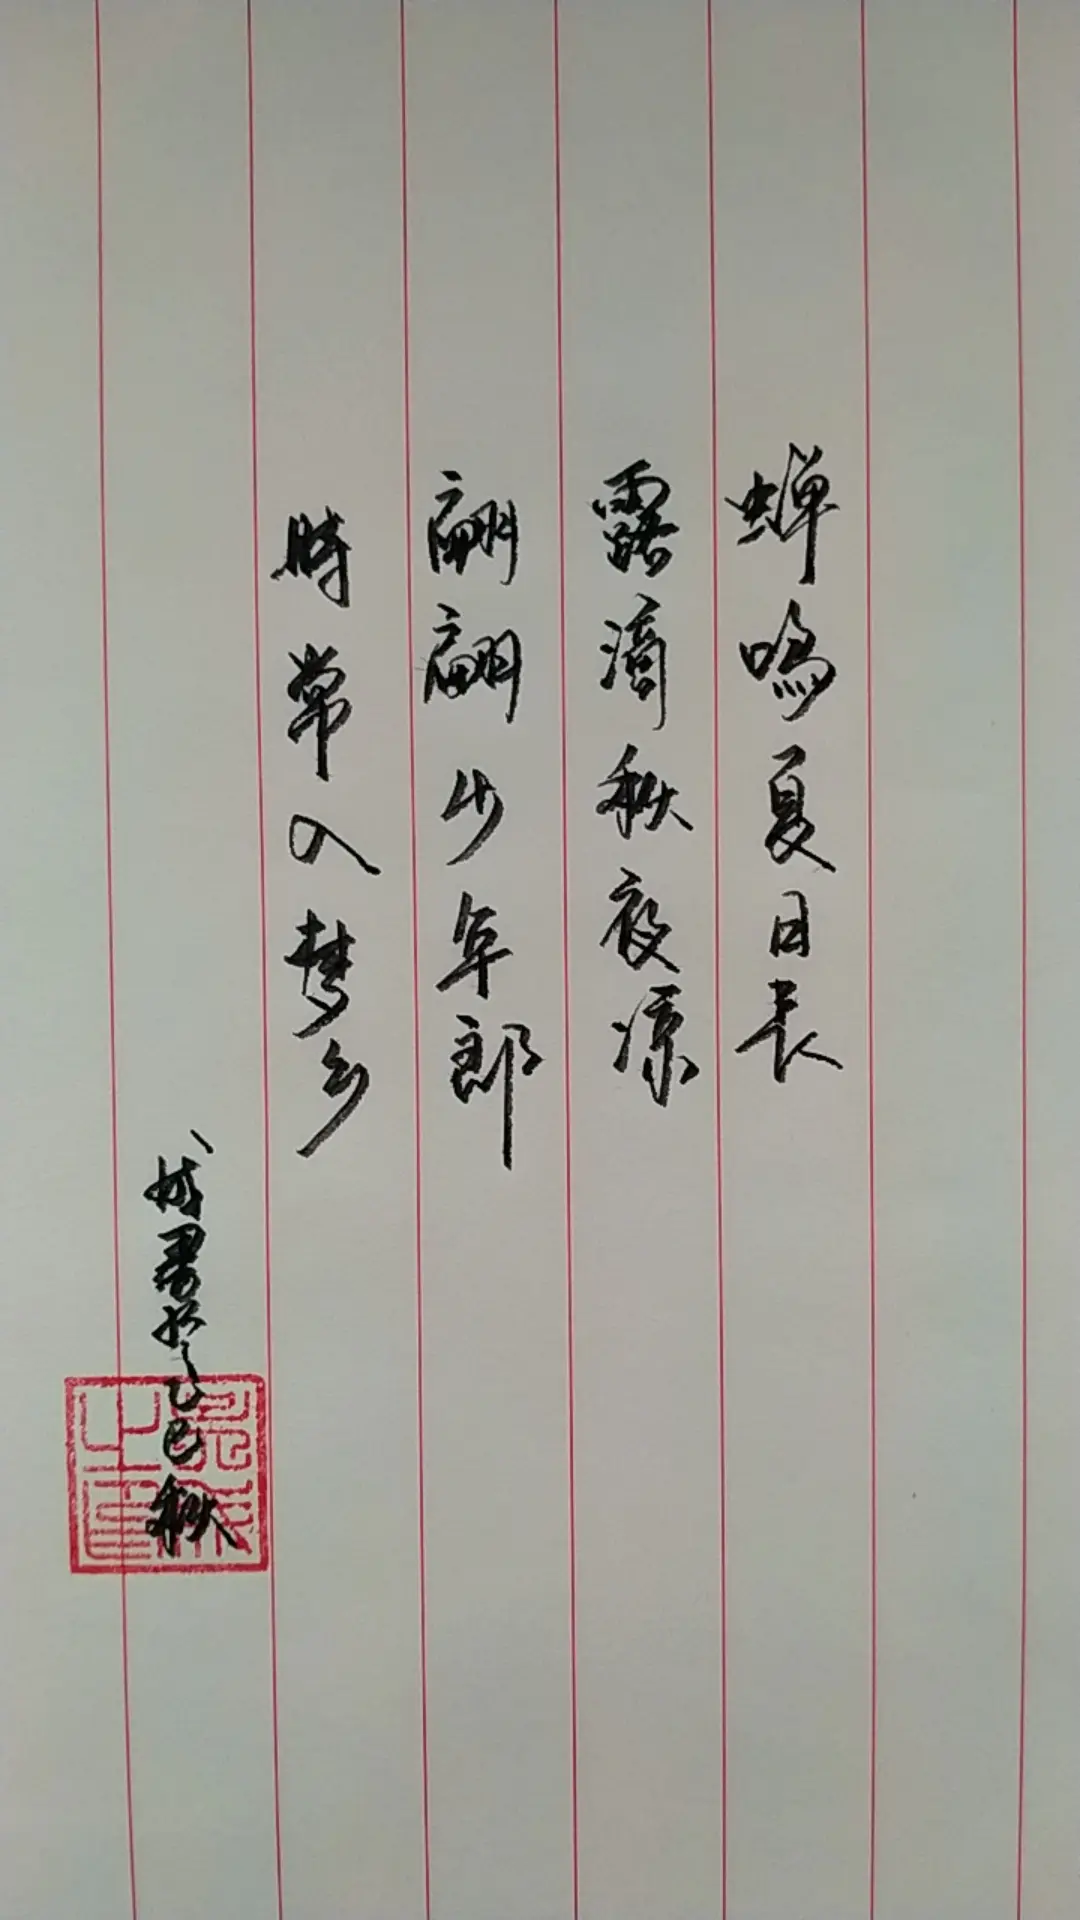 蝉鸣夏日长
露滴秋夜凉
翩翩少年郎
时常入梦乡
书于乙巳秋